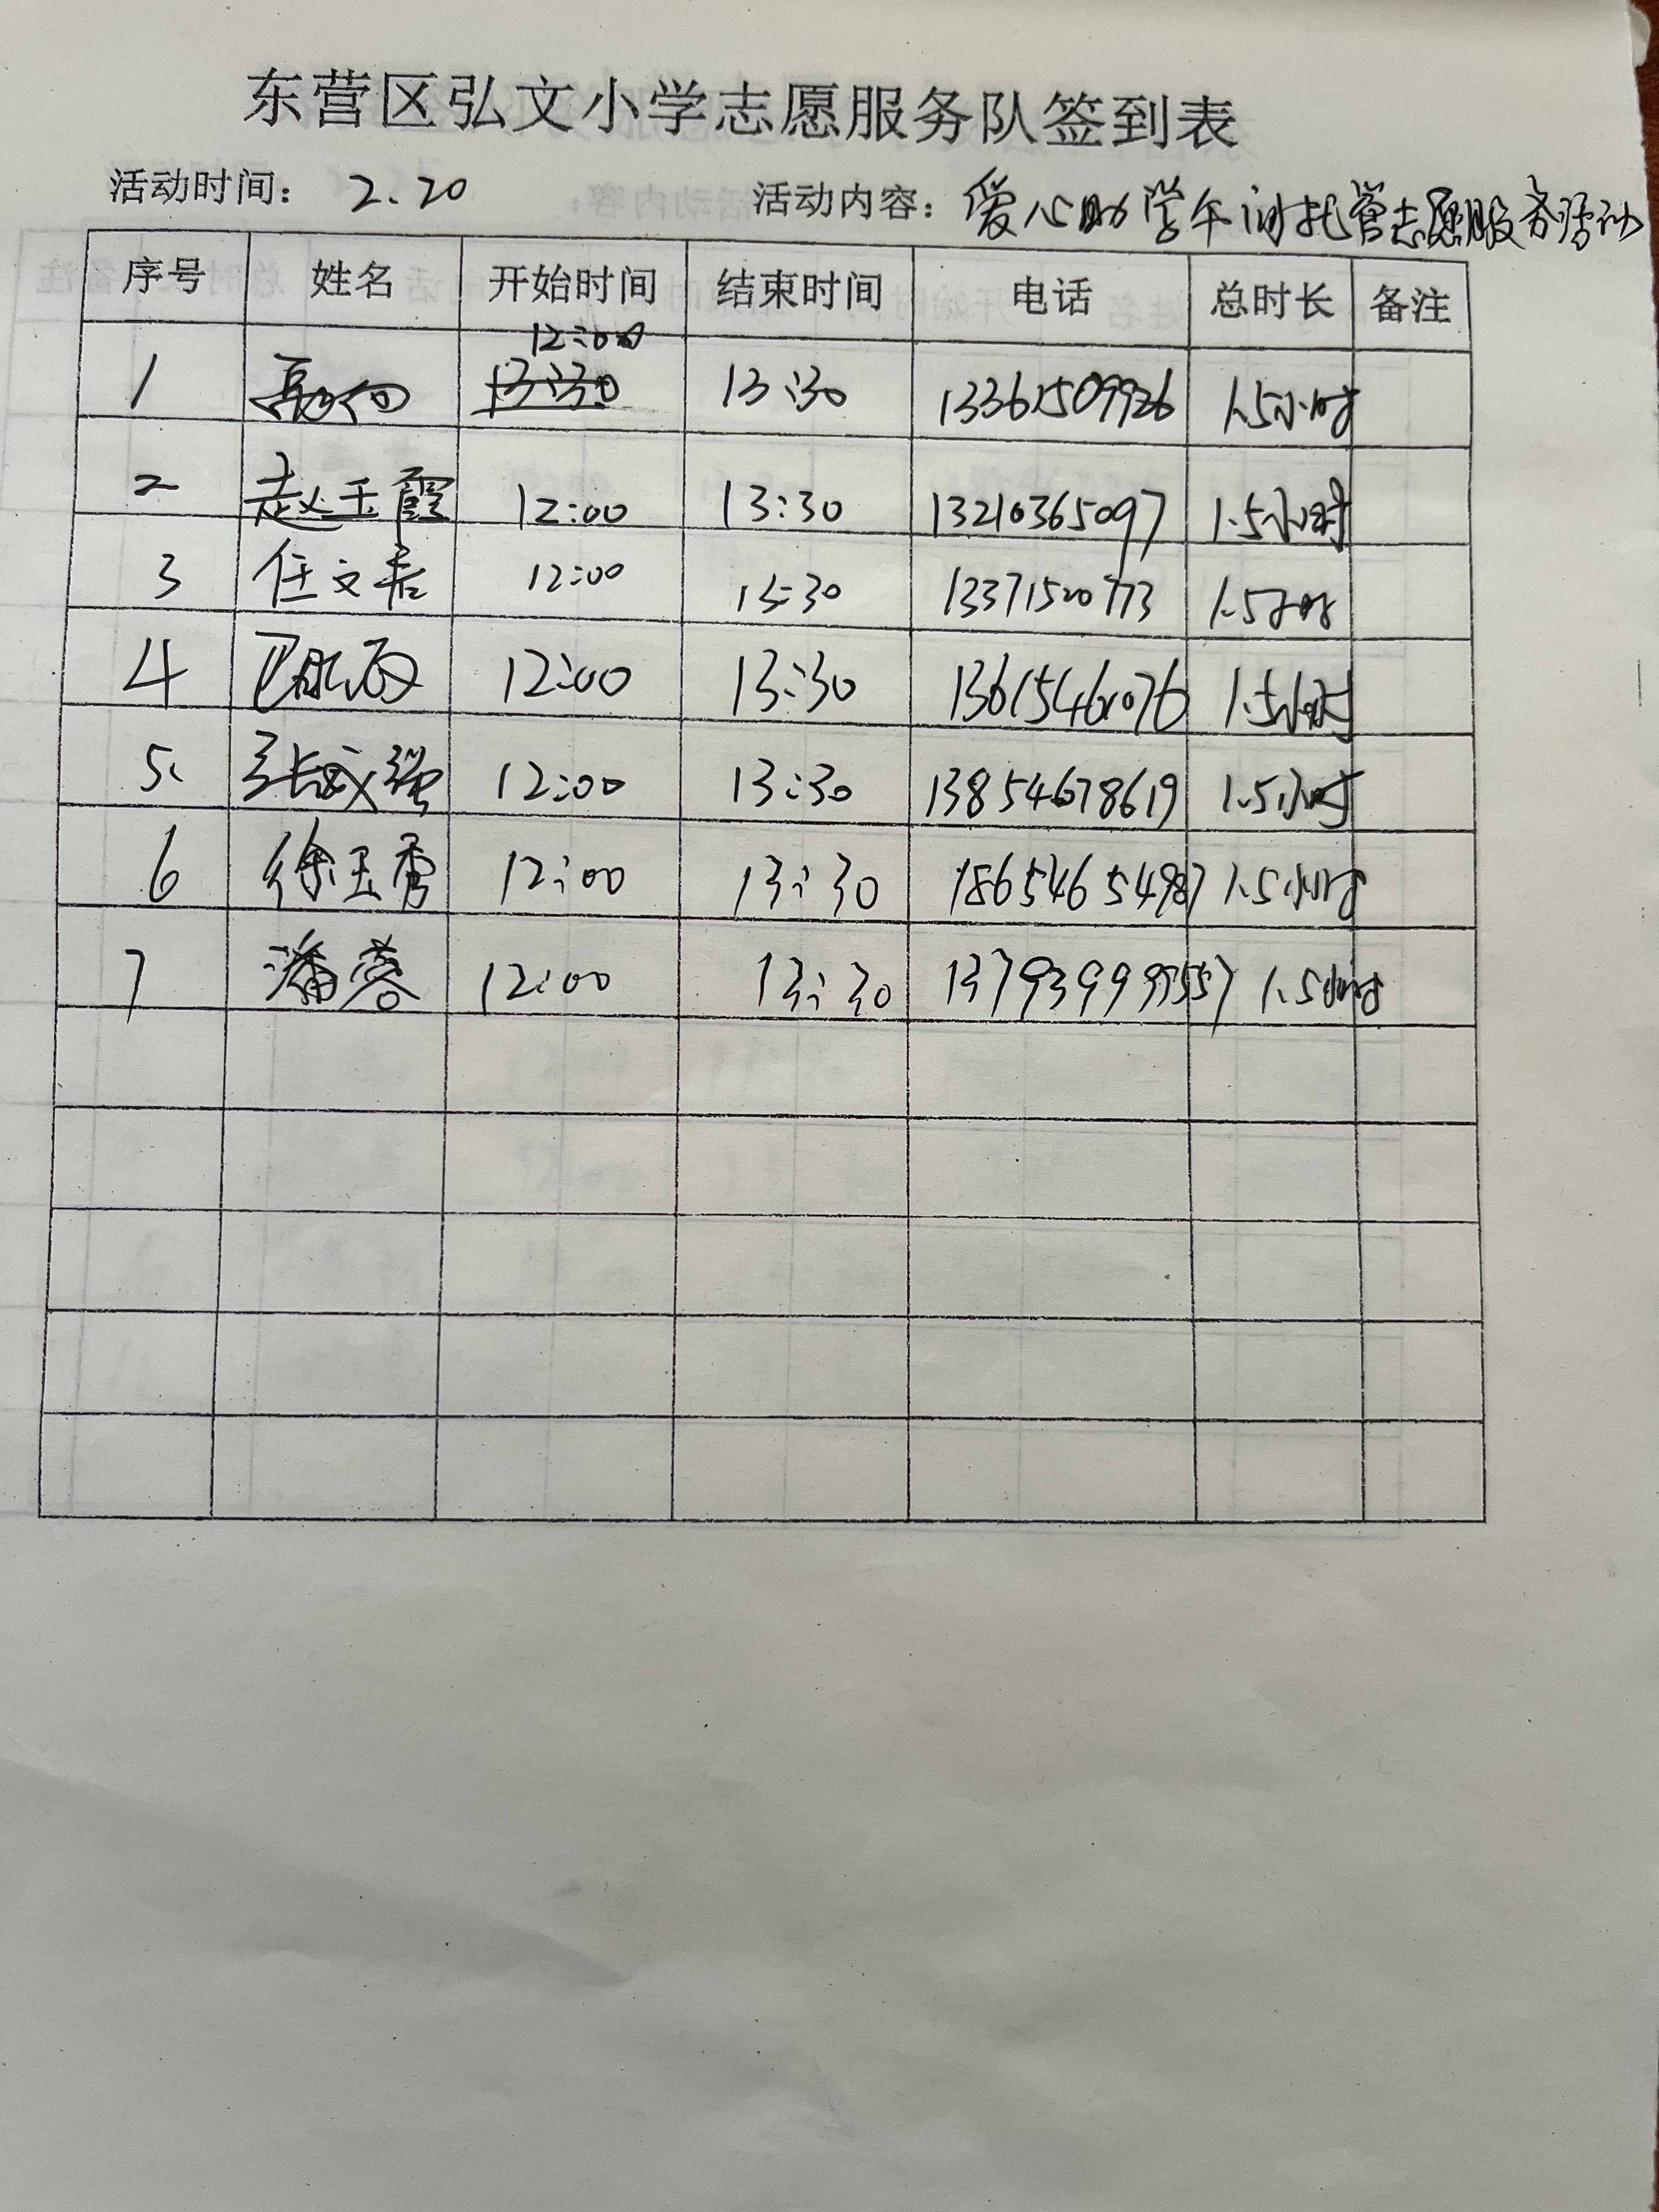 东营区弘文小学志愿服务队签到表
活动时间：2.20 活动内容：爱心助学午间托管志愿服务活动
序号 姓名 开始时间 结束时间 电话 总时长 备注
12:00
1 13:30 13:30 13361509926 1.5小时
2 赵玉霞 12:00 13:30 13210365097 1.5小时
3 任文君 12:00 13:30 13371520773 1.5小时
4 12:00 13:30 13615461076 1.5小时
5、 张成强 12:00 13:30 13854678619 1.5小时
6 徐玉秀 12:00 13:30 18654654987 1.5小时
7 潘蓉 12:00 13:30 1.5小时